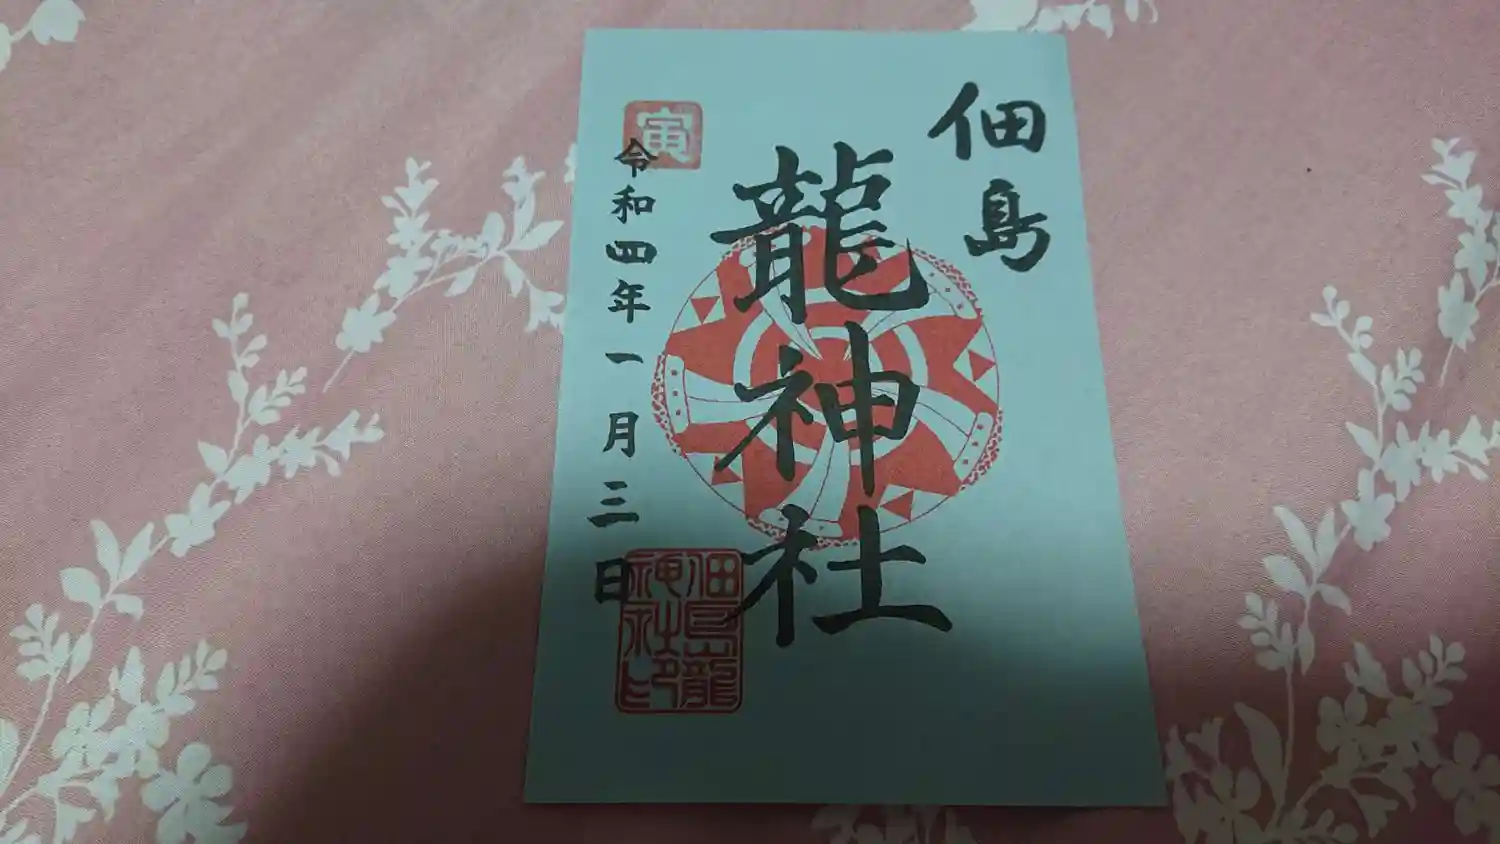 佃島
龍神社
寅
令和四年一月三日
佃島龍
神社印